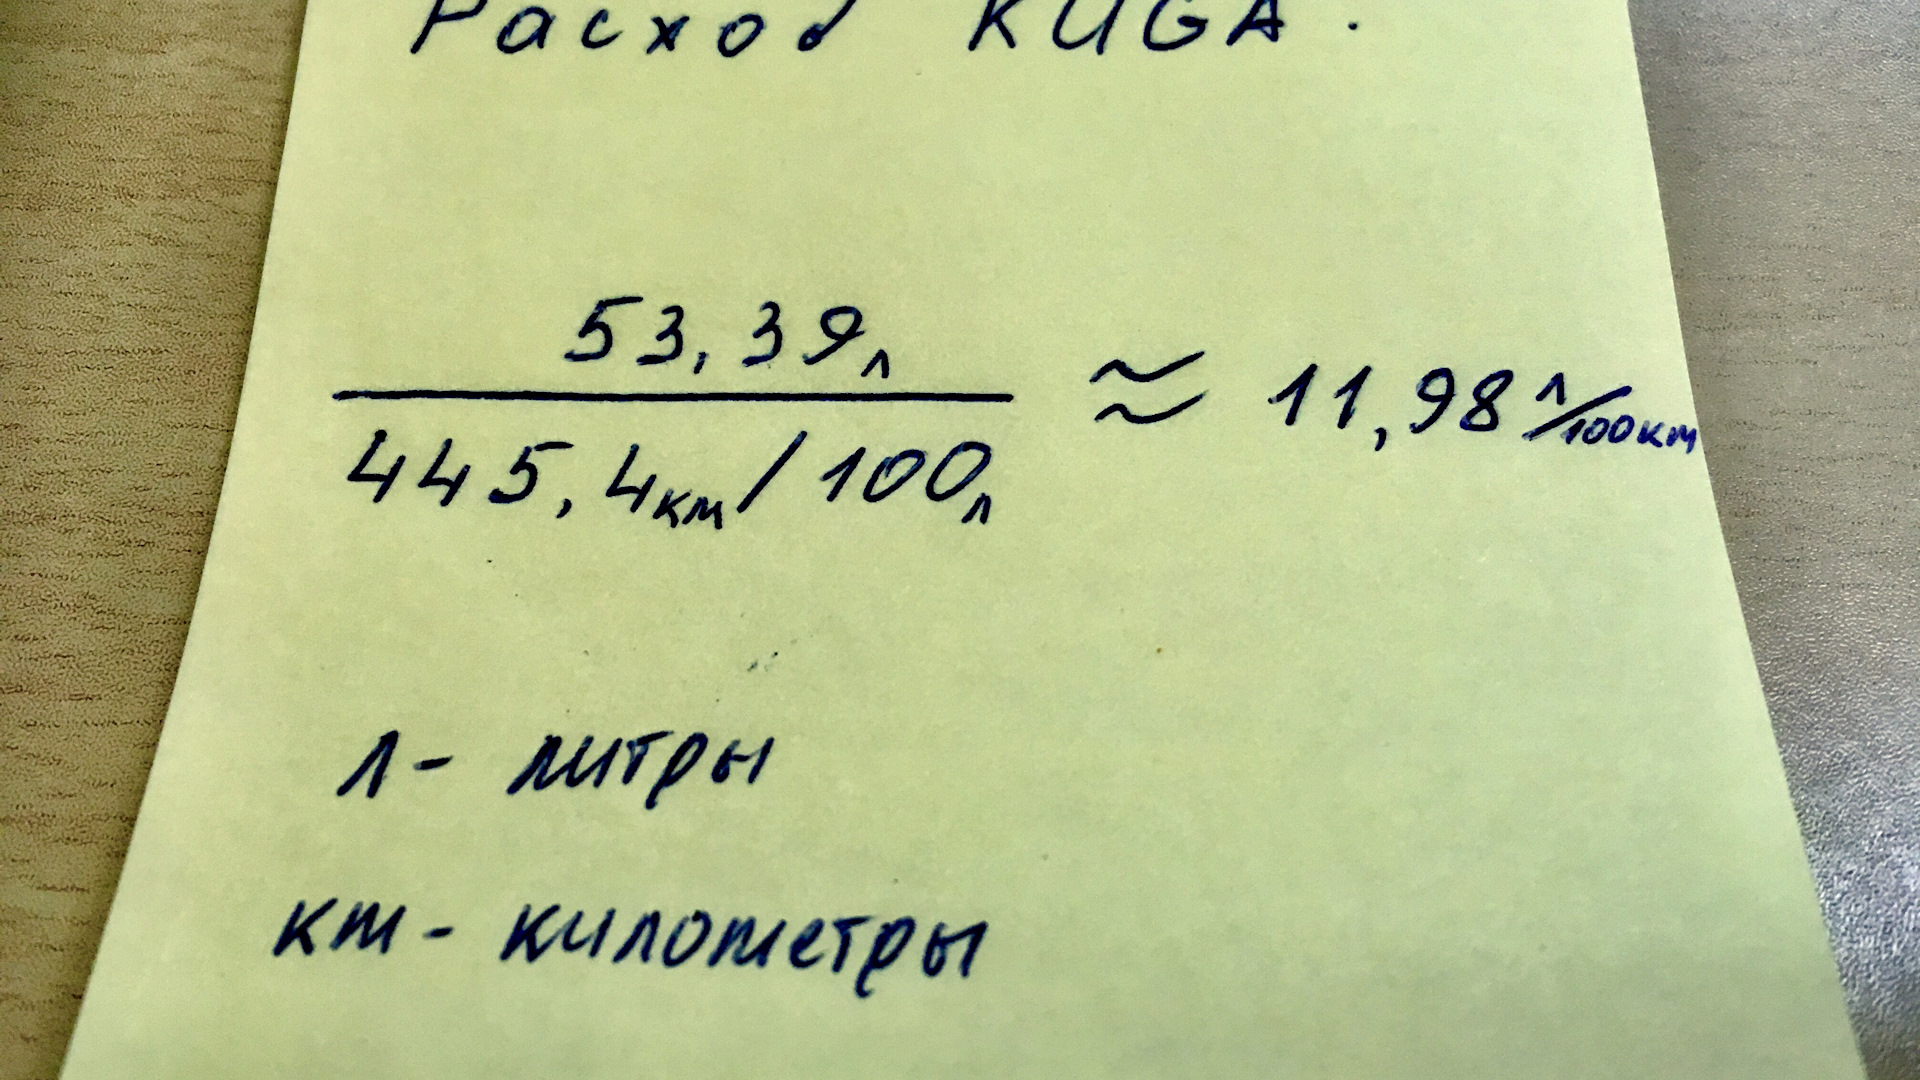 Расход KUGA.
53,39л
445,4км/100л
≈ 11,98 л/100км
л- литры
км- километры